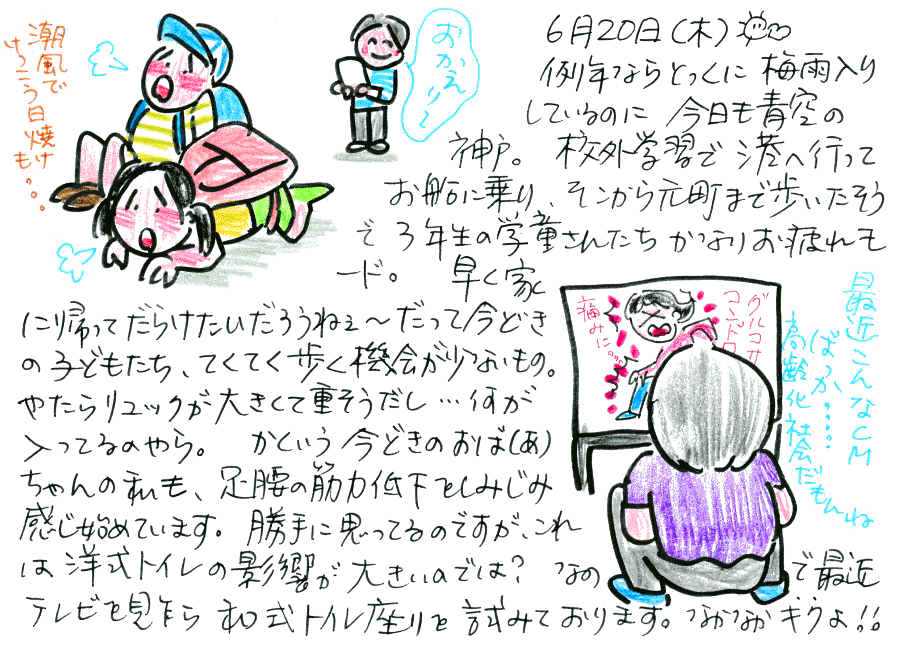 潮風で
けっこう日焼けも...
おかえり～
6月20日(木)
例年ならとっくに梅雨入り
しているのに 今日も青空の
神戸。 校外学習で港へ行って
お船に乗り、そこから元町まで歩いたそう
で 3年生の学童さんたち かなりお疲れモ
ード。 早く家
に帰ってだらけたいだろうねぇ～だって今どき
の子どもたち、てくてく歩く機会が少ないもの。
やたらリュックが大きくて重そうだし…何が
入ってるのやら。 かという今どきのおば(あ)
ちゃんの私も、足腰の筋力低下をしみじみ
感じ始めています。勝手に思ってるのですが、これ
は洋式トイレの影響が大きいのでは? なの
で最近
テレビを見ながら和式トイレ座りを試みております。なかなかギクよ!!
グルコサ
コンドロ
痛みに...
最近こんなCM
ばっか.....
高齢化社会だもんね